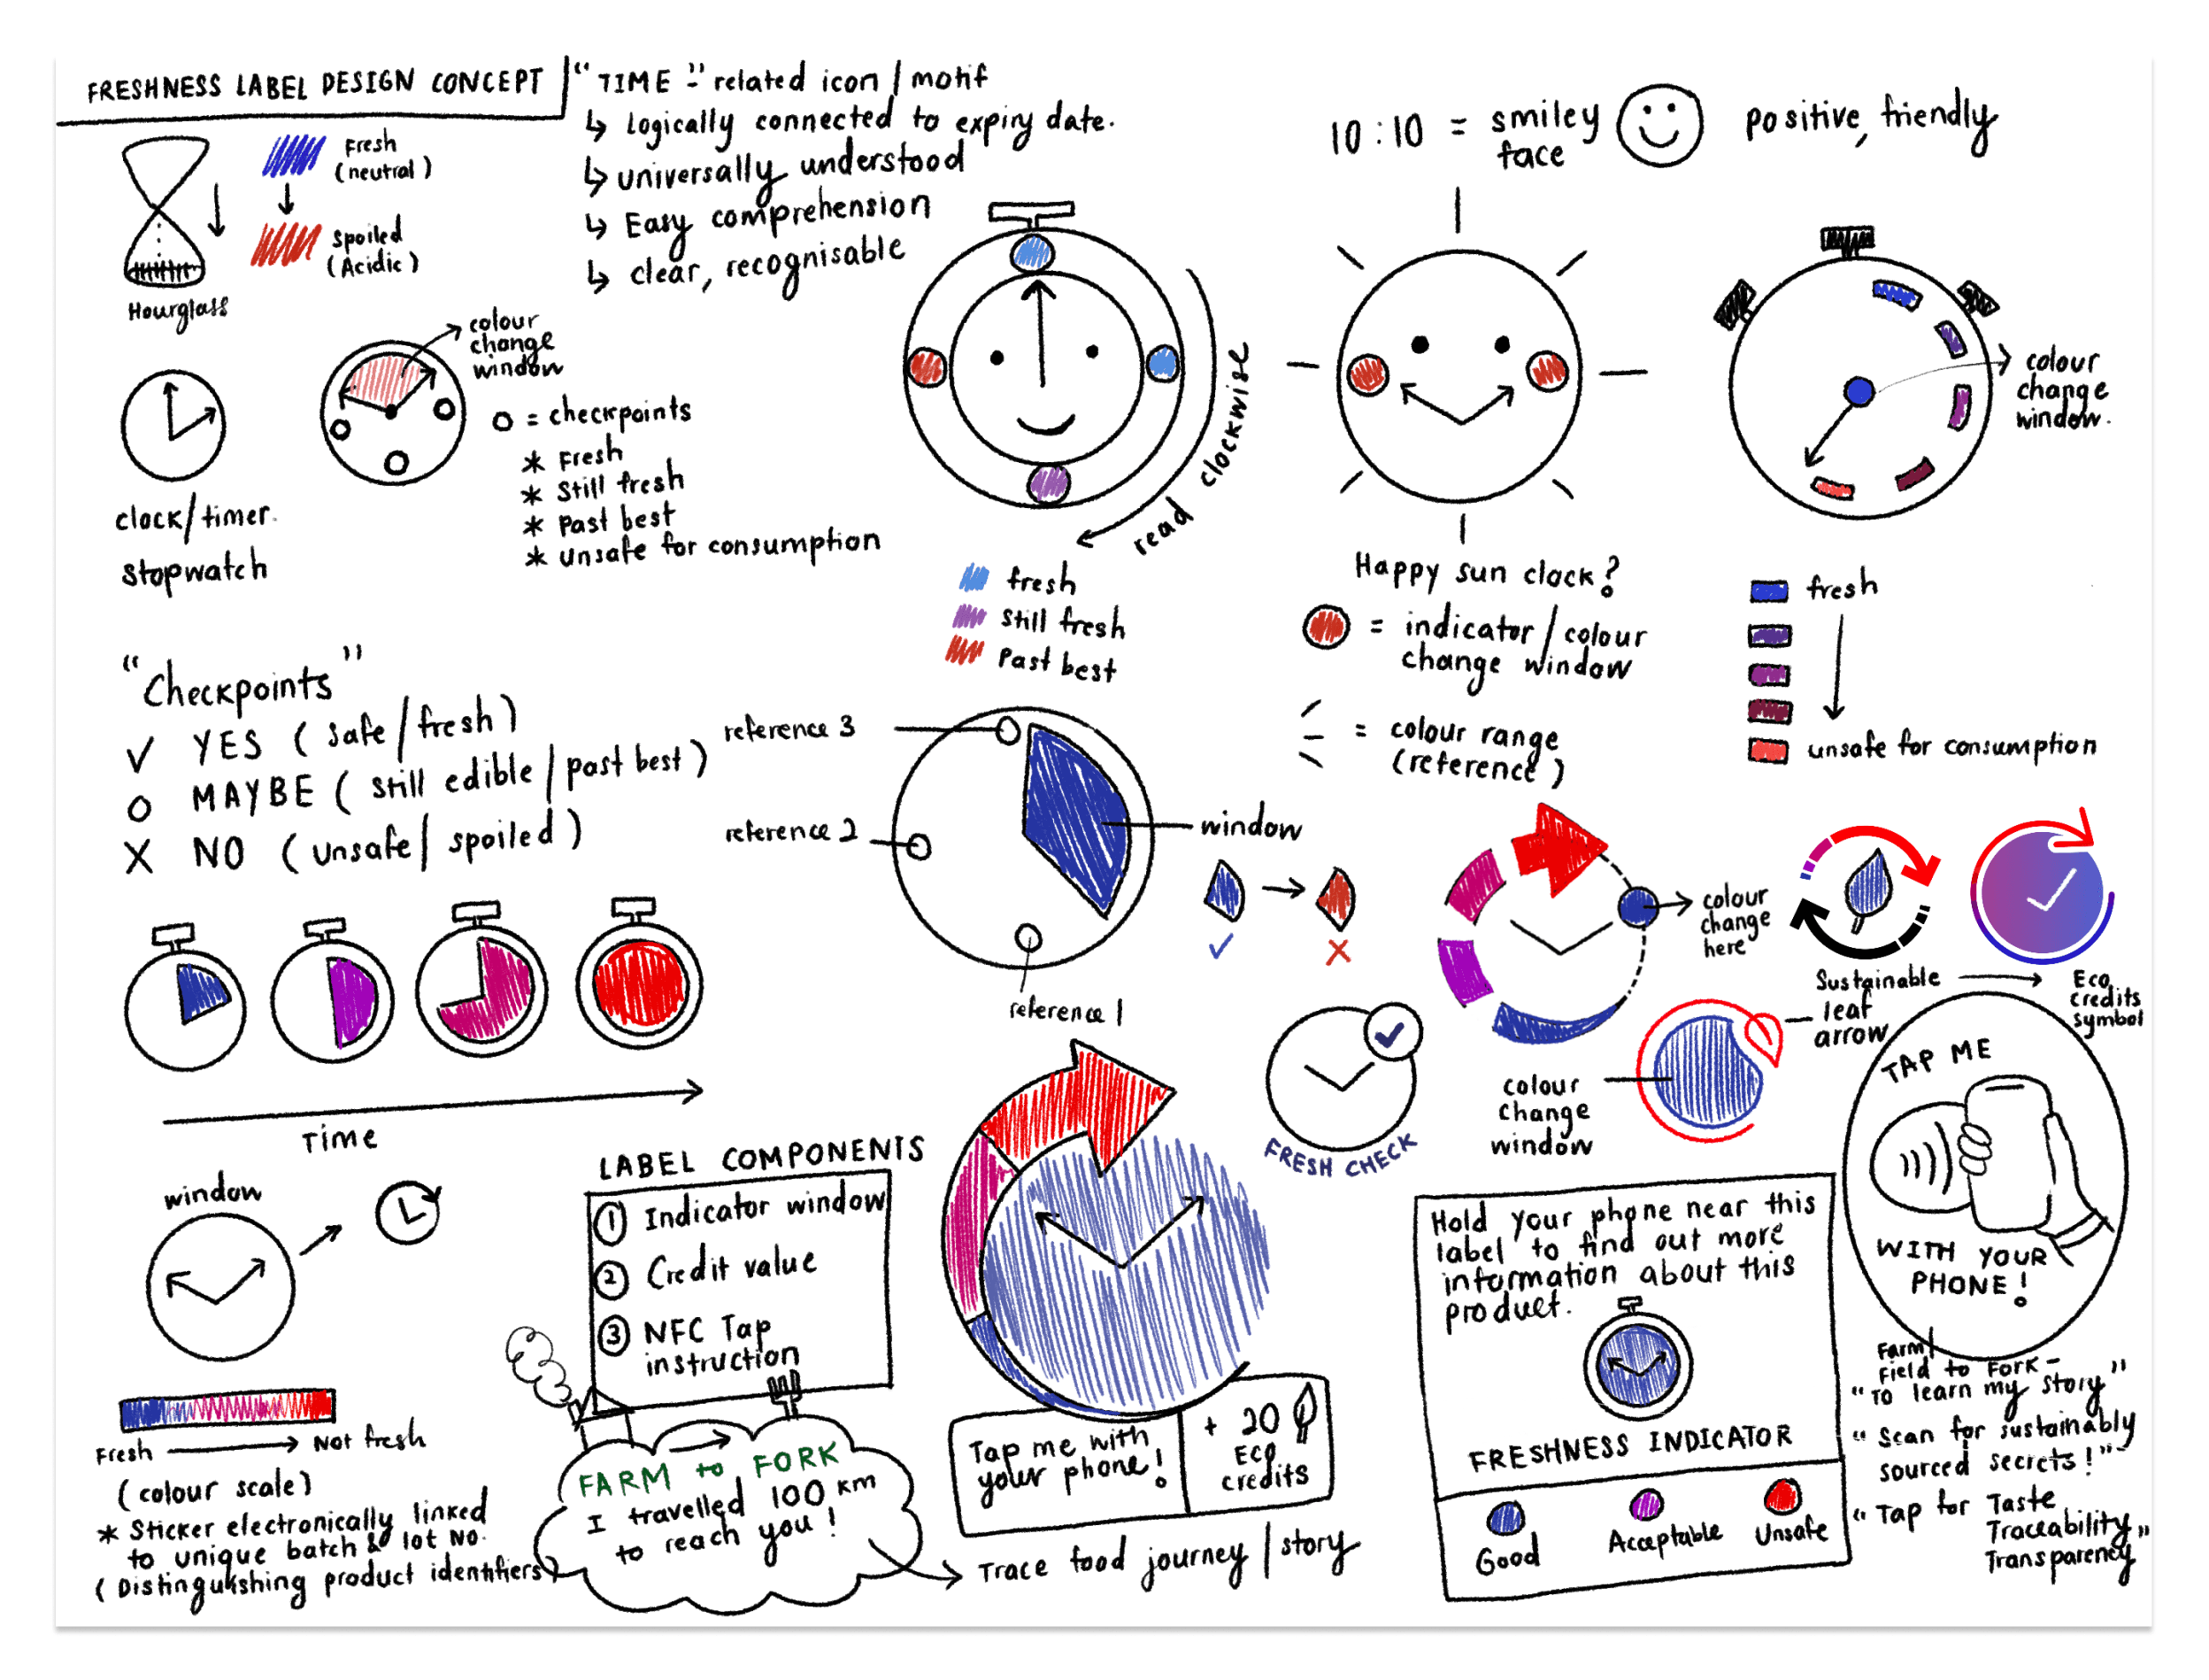 FRESHNESS LABEL DESIGN CONCEPT
"TIME"- related icon / motif
↳ logically connected to expiry date.
↳ universally understood
↳ Easy comprehension
↳ clear, recognisable
Fresh
(neutral)
Spoiled
(Acidic)
Hourglass
clock/timer.
stopwatch
colour
change
window
O = checkpoints
* Fresh
* Still fresh
* Past best
* unsafe for consumption
read clockwise
fresh
Still fresh
Past best
10:10 = smiley
face
positive, friendly
Happy sun clock?
= indicator / colour
change window
= colour range
(reference)
colour
change
window.
fresh
unsafe for consumption
"Checkpoints"
✓ YES (safe/fresh)
O MAYBE (still edible/past best)
X NO (unsafe/spoiled)
Time
reference 3
reference 2
reference 1
window
✓ X
FRESH CHECK
colour
change
here
Sustainable
leaf
arrow
Eco
credits
symbol
colour
change
window
window
Fresh → Not fresh
(colour scale)
* Sticker electronically linked
to unique batch & lot No.
(Distinguishing product identifiers)
LABEL COMPONENTS
1 Indicator window
2 Credit value
3 NFC Tap
instruction
FARM to FORK
I travelled 100 km
to reach you!
Trace food journey / story
Tap me with
your phone!
+ 20
Eco
credits
Hold your phone near this
label to find out more
information about this
product.
FRESHNESS INDICATOR
Good
Acceptable
Unsafe
TAP ME
WITH YOUR
PHONE!
Farm/
Field to Fork -
"To learn my story"
"Scan for sustainably
sourced secrets!"
"Tap for Taste
Traceability
Transparency"